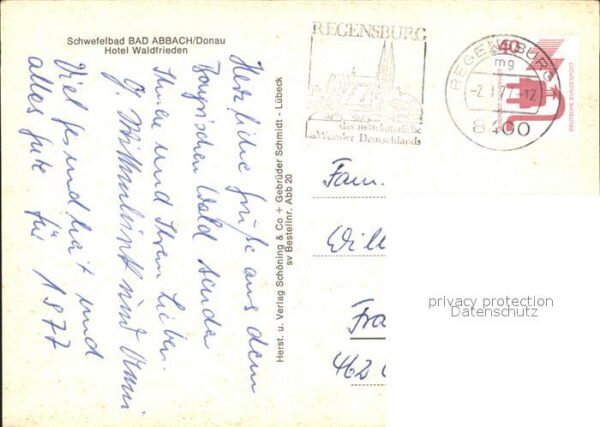 Schwefelbad BAD ABBACH/Donau
Hotel Waldfrieden
Herzliche Grüße aus dem
Bayrischen Wald sendet
Ihnen und Ihren Lieben
G.
Viel Gesundheit und
alles Gute für 1977
Herst. u. Verlag Schöning & Co + Gebrüder Schmidt - Lübeck
sv Bestellnr. Abb 20
REGENSBURG
das mittelalterliche
Wunder Deutschlands
REGENSBURG
mg
-2.1.7 -12
8400
40
DEUTSCHE BUNDESPOST
Fam.
Will
Fra
462
privacy protection
Datenschutz